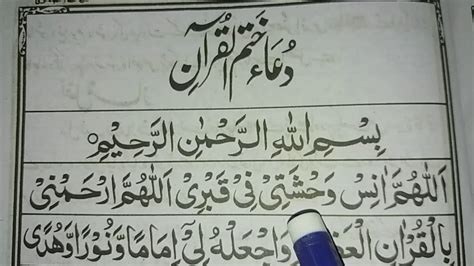 دُعَاءُ خَتْمِ الْقُرْآنِ
بِسْمِ اللهِ الرَّحْمٰنِ الرَّحِيْمِ
اَللّٰهُمَّ اٰنِسْ وَحْشَتِيْ فِيْ قَبْرِيْ اَللّٰهُمَّ ارْحَمْنِيْ
بِالْقُرْاٰنِ وَاجْعَلْهُ لِيْ اِمَامًا وَّنُوْرًا وَّهُدًى